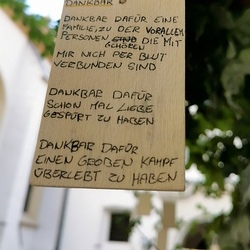 DANKBAR
DANKBAR DAFÜR EINE
FAMILIE, ZU DER VORALLEM
PERSONEN SIND DIE MIT
GEHÖREN
MIR NICH PER BLUT
VERBUNDEN SIND
DANKBAR DAFÜR
SCHON MAL LIEBE
GESPÜRT ZU HABEN
DANKBAR DAFÜR
EINEN GROßEN KAMPF
ÜBERLEBT ZU HABEN